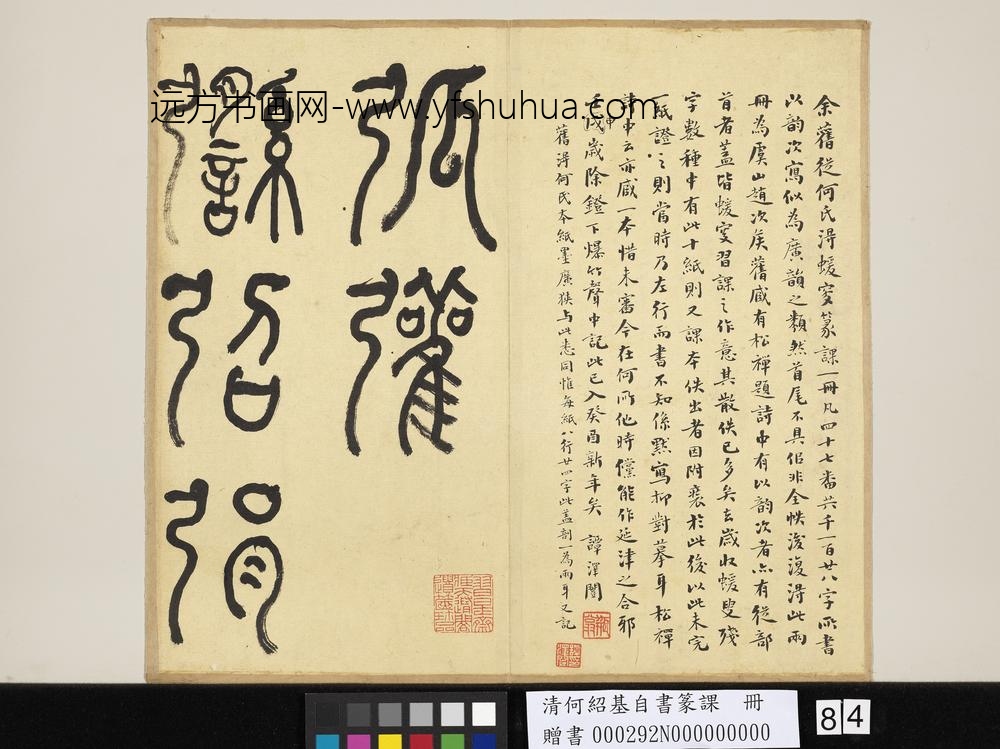 余舊從何氏得蝯叟篆課一冊凡四十七番共千一百廿八字所書
以韻次寫似為廣韻之類然首尾不具但非全帙後復得此兩
冊為虞山趙次侯舊藏有松禪題詩中有以韻次者亦有從部
首者蓋皆蝯叟習課之作意其散佚已多矣去歲收蝯叟殘
字數種中有此十紙則又課本佚出者因附裝於此後以此未完
一紙證之則當時乃左行而書不知係默寫抑對摹耳松禪
詩中云亦藏一本惜未審今在何所他時儻能作延津之合邪
壬戌歲除鐙下爆竹聲中記此已入癸酉新年矣 譚澤闓
舊得何氏本紙墨廣狹与此悉同惟每紙八行廿四字此蓋剖一為兩耳又記
弧
弨
弲
远方书画网-www.yfshuhua.com
清何紹基自書篆課 冊
贈書 000292N000000000
84